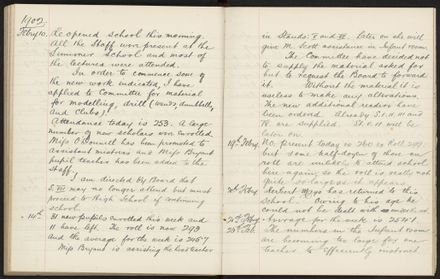 1902
Feby 10. Re opened school this morning.
All the Staff were present at the
Summer School and most of
the lectures were attended.
In order to commence some of
the new work indicated, I have
applied to Committee for material
for modelling, drill (wands, dumbbells,
and clubs).
Attendance today is 253. A large
number of new scholars were enrolled.
Miss O'Donnell has been promoted to
assistant mistress and Miss Bryant
pupil teacher has been added to the
Staff.
I am directed by Board that
S. VII may no longer attend but must
proceed to High School if continuing
school.
" 14th 31 new pupils enrolled this week and
11 have left. The roll is now 293
and the average for the week is 245.7
Miss Bryant is assisting the
in Stands. V and VI. Later on she will
give M. Scott assistance in Infant room.
The Committee have decided not
to supply the material asked for
but to request the Board to forward
it. Without the material it is
useless to make any alterations.
The new additional readers have
been ordered. Already S. I. II III and
IV. are supplied. St. V. VI will be
later on.
19th Feby. No. present today is 260 Roll 299
but some half-dozen of those on
roll are unlikely to attend school
here again, so the roll is really not
quite so large as it appears.
Feby. Herbert has returned to this
school. Owing to his age he
could not be dealt with
Feby Average for the week is 254.7
Feb. The numbers in the Infant room
are becoming too large for one
teacher to efficiently instruct.